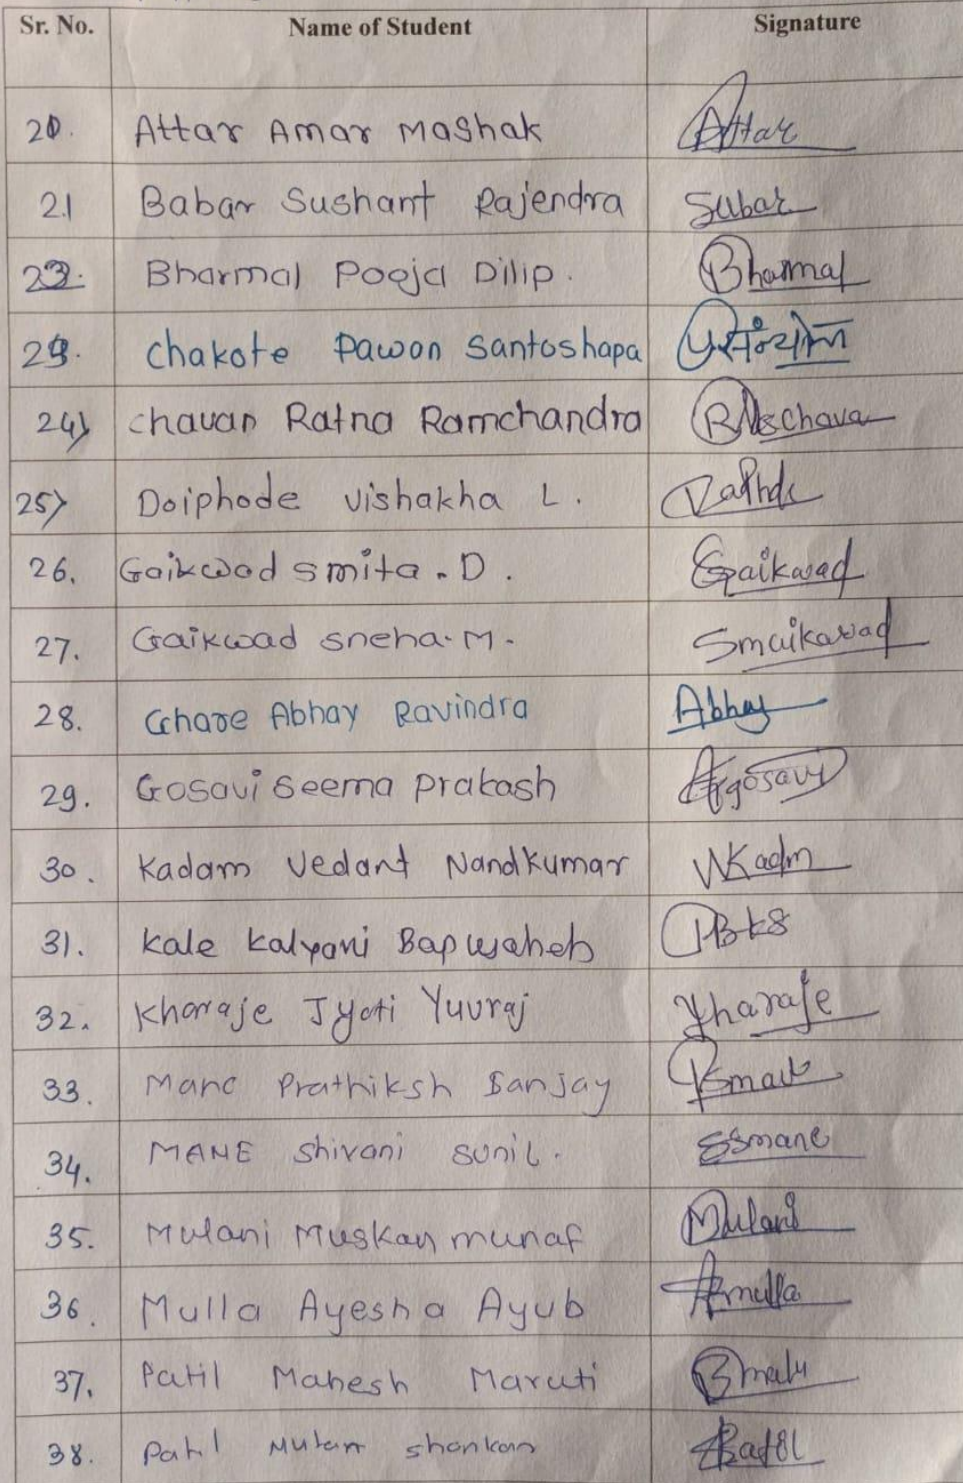 Sr. No. Name of Student Signature
20. Attar Amar Mashak Attar
21 Babar Sushant Rajendra Sabar
22. Bharmal Pooja Dilip. Bharmal
23. Chakote Pawan Santoshapa
24) chavan Ratna Ramchandra
25) Doiphode Vishakha L.
26. Gaikwad smita. D. Gaikwad
27. Gaikwad sneha. M. Smaikawad
28. Ghare Abhay Ravindra Abhay
29. Gosavi Seema prakash
30. Kadam Vedant Nandkumar VKadm
31. Kale Kalyani Bapusaheb
32. Kharaje Jyoti Yuvraj Kharaje
33. Mane Prathiksh Sanjay
34. MANE Shivani sunil. SSmane
35. Mulani Muskan munaf Mulani
36. Mulla Ayesha Ayub Amulla
37. Patil Mahesh Maruti
38. Patil shankar